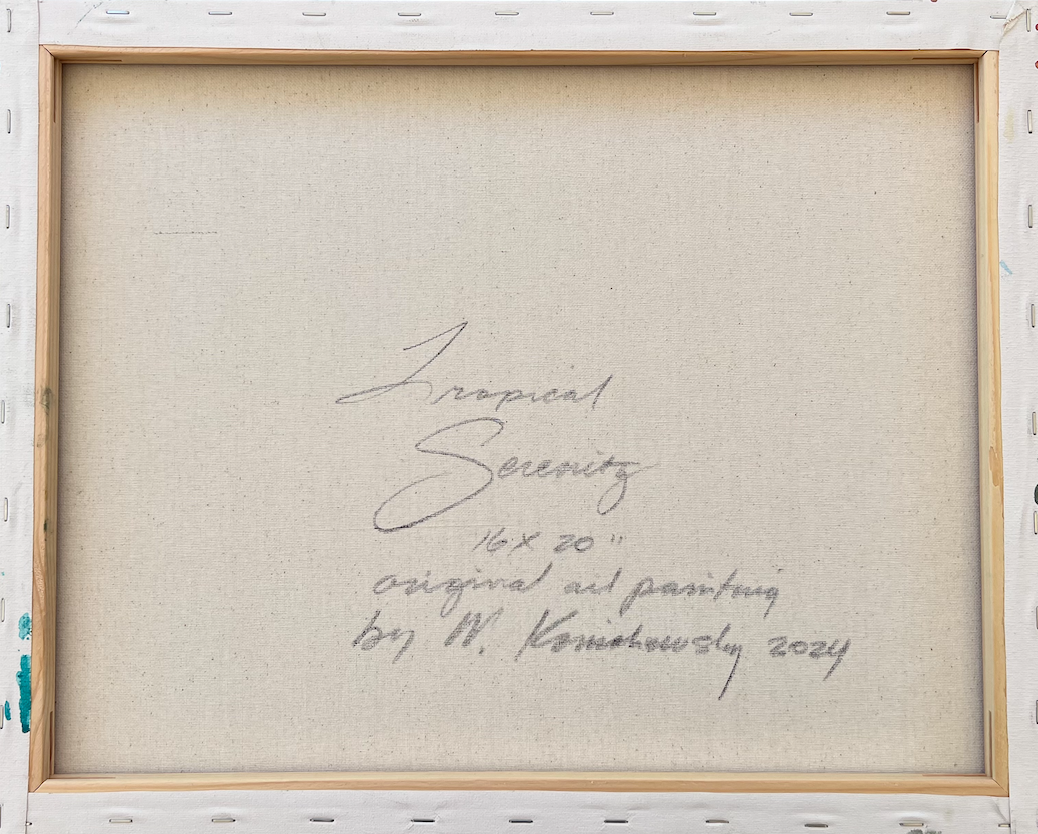 Tropical
Serenity
16 x 20"
original oil painting
by 2024